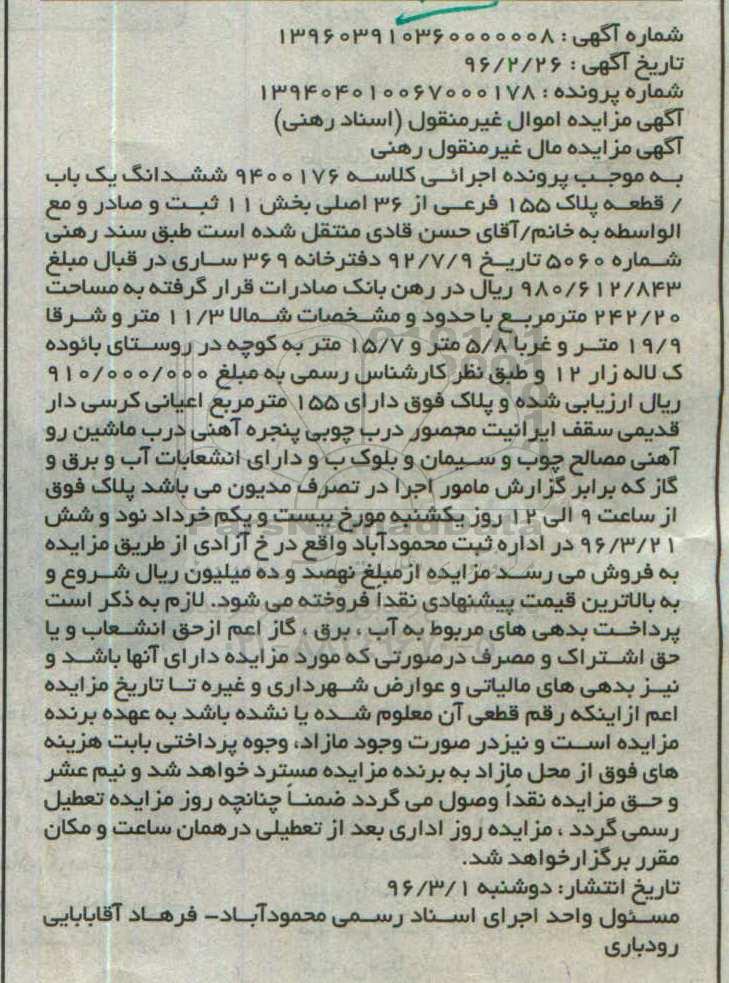 شماره آگهی : ۱۳۹۶۰۳۹۱۰۳۶۰۰۰۰۰۰۸
تاریخ آگهی : ۹۶/۲/۲۶
شماره پرونده : ۱۳۹۴۰۴۰۱۰۰۶۷۰۰۰۱۷۸
آگهی مزایده اموال غیرمنقول (اسناد رهنی)
آگهی مزایده مال غیرمنقول رهنی
به موجب پرونده اجرائی کلاسه ۹۴۰۰۱۷۶ ششدانگ یک باب
/ قطعه پلاک ۱۵۵ فرعی از ۳۶ اصلی بخش ۱۱ ثبت و صادر و مع
الواسطه به خانم/آقای حسن قادی منتقل شده است طبق سند رهنی
شماره ۵۰۶۰ تاریخ ۹۲/۷/۹ دفترخانه ۳۶۹ ساری در قبال مبلغ
۹۸۰/۶۱۲/۸۴۳ ریال در رهن بانک صادرات قرار گرفته به مساحت
۲۴۲/۲۰ مترمربع با حدود و مشخصات شمالا ۱۱/۳ متر و شرقا
۱۹/۹ متر و غربا ۵/۸ متر و ۱۵/۷ متر به کوچه در روستای بائوده
ک لاله زار ۱۲ و طبق نظر کارشناس رسمی به مبلغ ۹۱۰/۰۰۰/۰۰۰
ریال ارزیابی شده و پلاک فوق دارای ۱۵۵ مترمربع اعیانی کرسی دار
قدیمی سقف ایرانیت محصور درب چوبی پنجره آهنی درب ماشین رو
آهنی مصالح چوب و سیمان و بلوک ب و دارای انشعابات آب و برق و
گاز که برابر گزارش مامور اجرا در تصرف مدیون می باشد پلاک فوق
از ساعت ۹ الی ۱۲ روز یکشنبه مورخ بیست و یکم خرداد نود و شش
۹۶/۳/۲۱ در اداره ثبت محمودآباد واقع در خ آزادی از طریق مزایده
به فروش می رسد مزایده ازمبلغ نهصد و ده میلیون ریال شروع و
به بالاترین قیمت پیشنهادی نقدا فروخته می شود. لازم به ذکر است
پرداخت بدهی های مربوط به آب ، برق ، گاز اعم ازحق انشعاب و یا
حق اشتراک و مصرف درصورتی که مورد مزایده دارای آنها باشد و
نیز بدهی های مالیاتی و عوارض شهرداری و غیره تا تاریخ مزایده
اعم ازاینکه رقم قطعی آن معلوم شده یا نشده باشد به عهده برنده
مزایده است و نیزدر صورت وجود مازاد، وجوه پرداختی بابت هزینه
های فوق از محل مازاد به برنده مزایده مسترد خواهد شد و نیم عشر
و حق مزایده نقداً وصول می گردد ضمناً چنانچه روز مزایده تعطیل
رسمی گردد ، مزایده روز اداری بعد از تعطیلی درهمان ساعت و مکان
مقرر برگزارخواهد شد.
تاریخ انتشار: دوشنبه ۹۶/۳/۱
مسئول واحد اجرای اسناد رسمی محمودآباد- فرهاد آقابابایی
رودباری